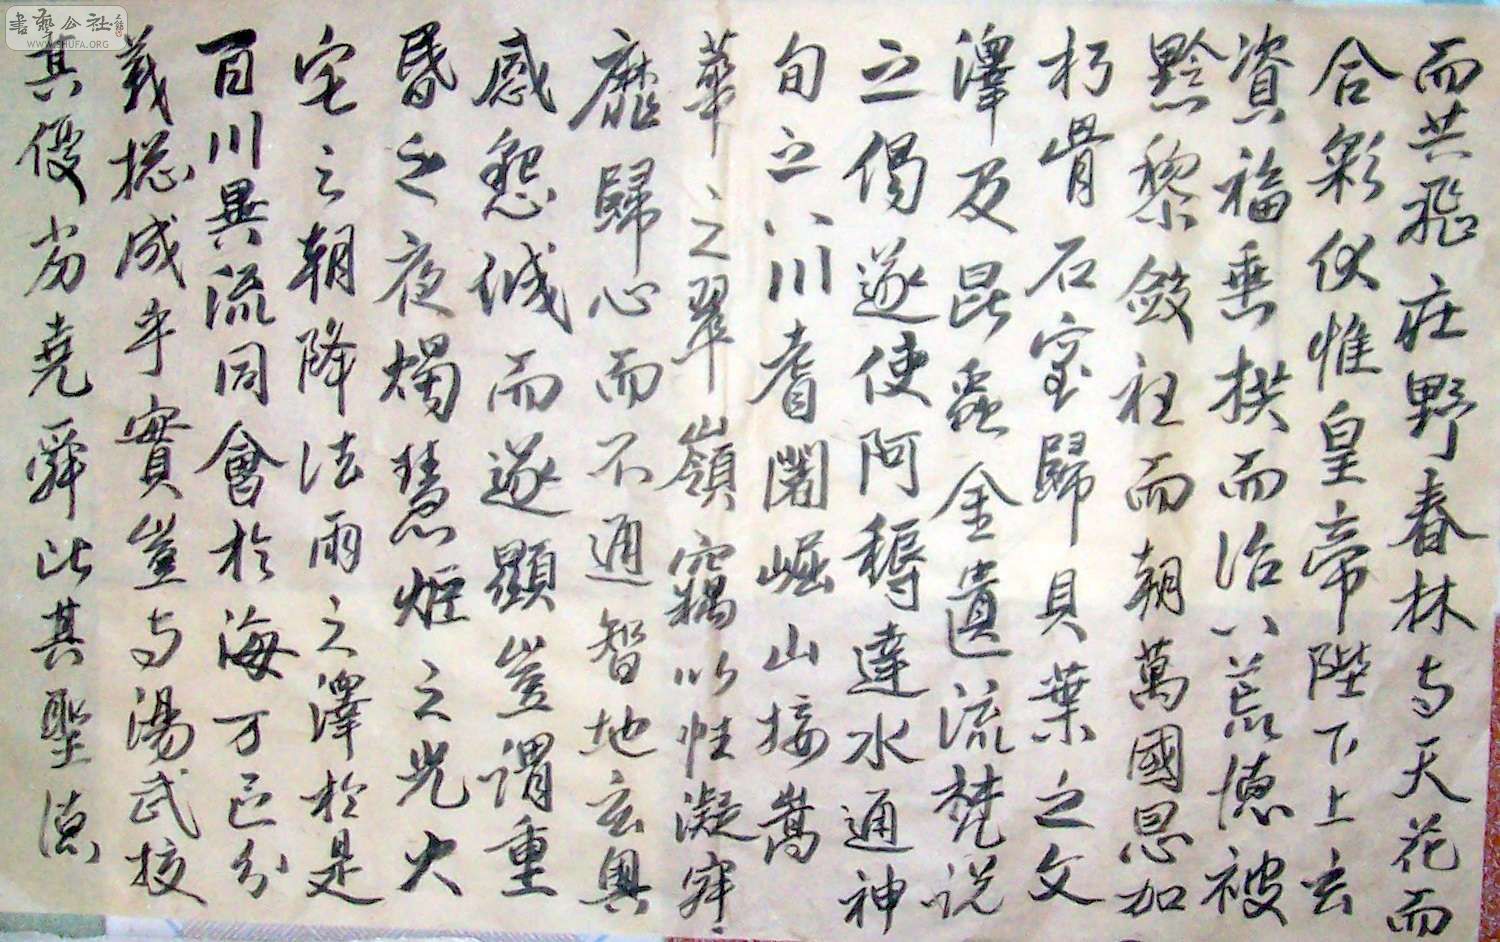 而共飛在野春林与天花而
合彩伏惟皇帝陛下上玄
資福垂拱而治八荒德被
黔黎斂衽而朝萬國恩加
朽骨石室歸貝葉之文
澤及昆蟲金遺流梵説
之偈遂使阿耨達水通神
旬之八川耆闍崛山接嵩
華之翠嶺竊以性凝寂
靡歸心而不通智地玄奧
感懇誠而遂顯豈謂重
昏之夜燭慧炬之光火
宅之朝降法雨之澤於是
百川異流同會於海万區分
義揔成乎實豈与湯武校
其優劣堯舜比其聖德
書藝公社
WWW.SHUFA.ORG